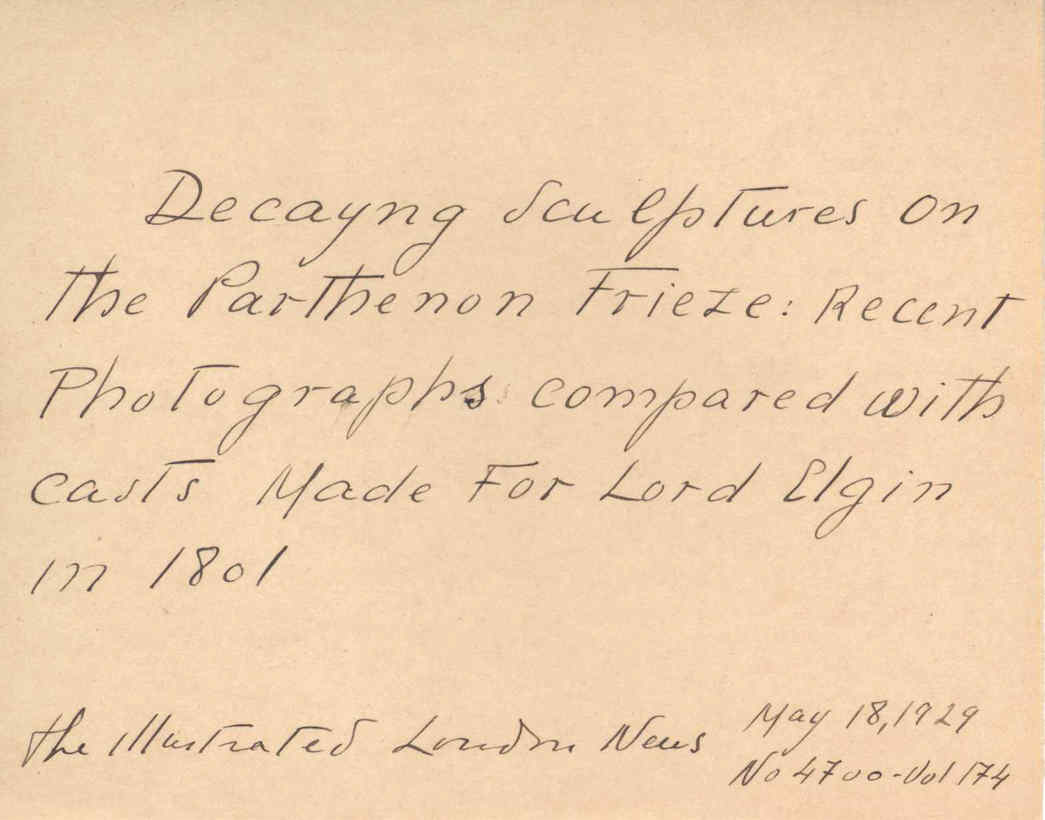 Decayng Sculptures on
the Parthenon Frieze: Recent
Photographs compared with
casts Made For Lord Elgin
in 1801
the Illustrated London News May 18, 1929
No 4700-Vol 174